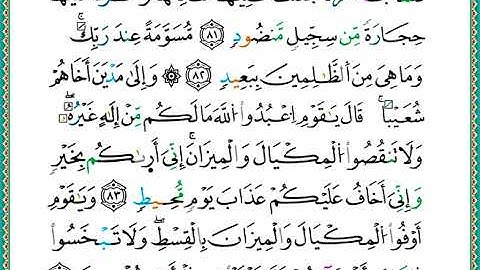 حِجَارَةً مِّن سِجِّيلٍ مَّنضُودٍ ٨٢ مُّسَوَّمَةً عِندَ رَبِّكَ ۖ
وَمَا هِىَ مِنَ ٱلظَّٰلِمِينَ بِبَعِيدٍ ٨٣ ۞ وَإِلَىٰ مَدْيَنَ أَخَاهُمْ
شُعَيْبًا ۚ قَالَ يَٰقَوْمِ ٱعْبُدُوا۟ ٱللَّهَ مَا لَكُم مِّنْ إِلَٰهٍ غَيْرُهُۥ ۖ
وَلَا تَنقُصُوا۟ ٱلْمِكْيَالَ وَٱلْمِيزَانَ ۚ إِنِّىٓ أَرَىٰكُم بِخَيْرٍ
وَإِنِّىٓ أَخَافُ عَلَيْكُمْ عَذَابَ يَوْمٍ مُّحِيطٍ ٨٣ وَيَٰقَوْمِ
أَوْفُوا۟ ٱلْمِكْيَالَ وَٱلْمِيزَانَ بِٱلْقِسْطِ ۖ وَلَا تَبْخَسُوا۟